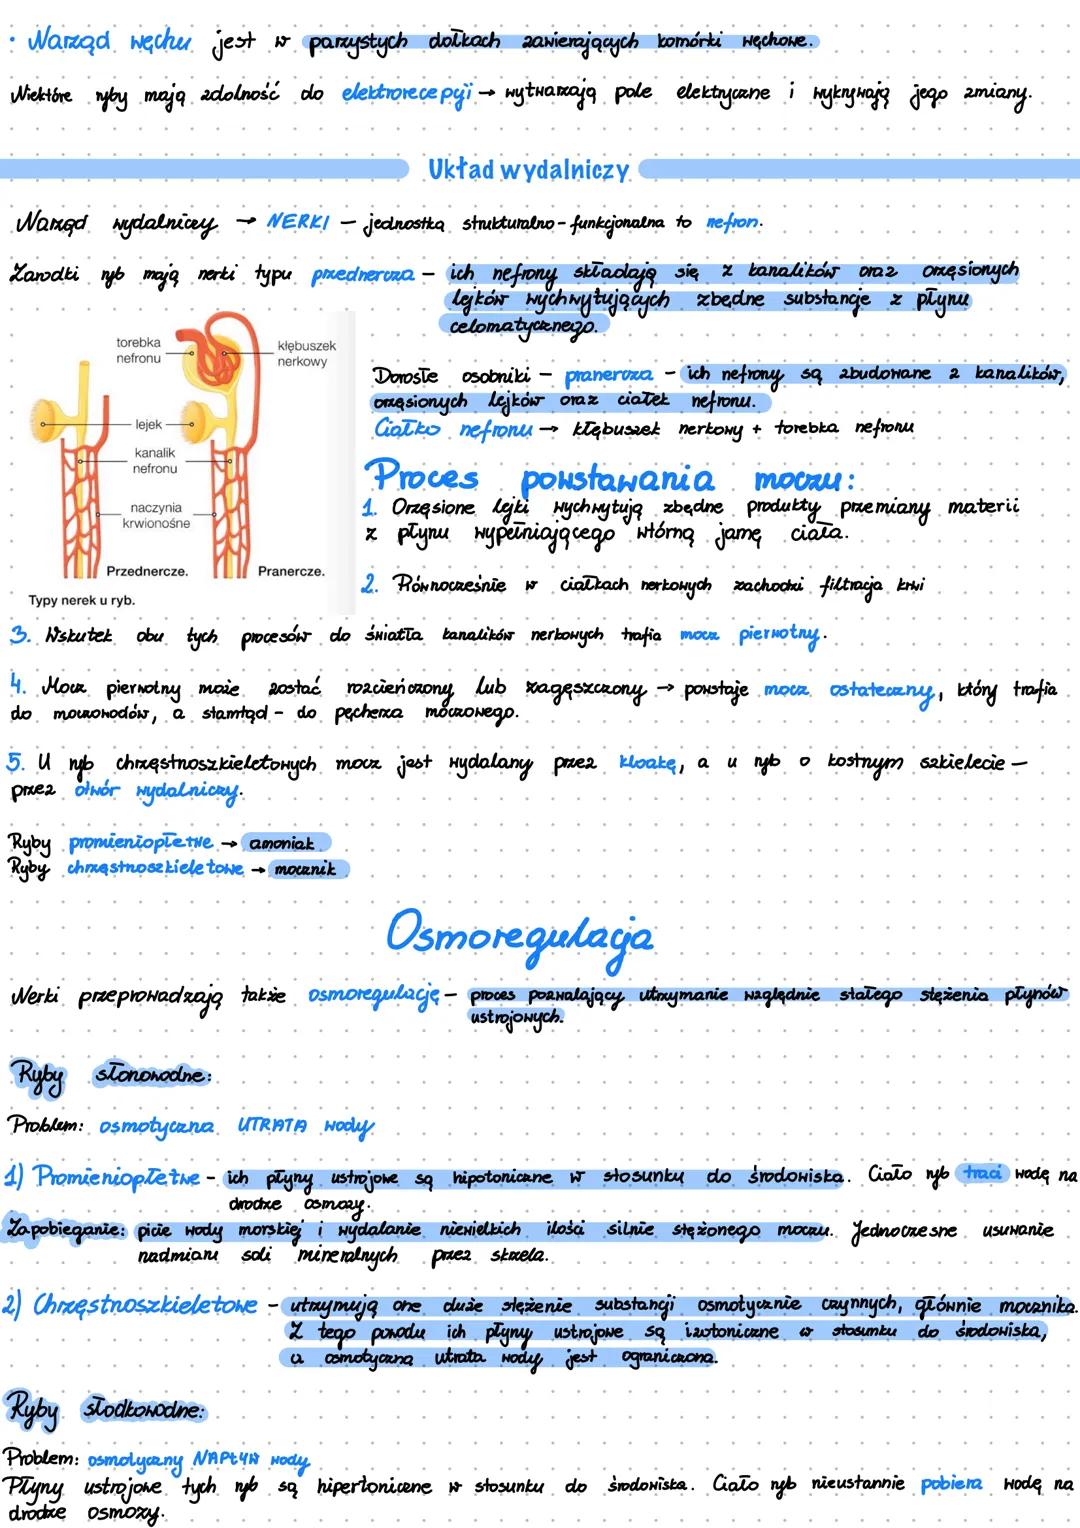 · Narząd węchu jest w parzystych dołkach zawierających komórki węchowe.
Niektóre ryby mają zdolność do elektrorecepcji → wytwarzają pole elektryczne i wykrywają jego zmiany.
Układ wydalniczy
Narząd wydalniczy → NERKI – jednostką strukturalno-funkcjonalna to nefron.
Zarodki ryb mają nerki typu przednercza – ich nefrony składają się z kanalików oraz orzęsionych
lejków wychwytujących zbędne substancje z płynu
celomatycznego.
torebka nefronu
kłębuszek nerkowy
lejek
kanalik nefronu
naczynia krwionośne
Przednercze.
Pranercze.
Typy nerek u ryb.
Dorosłe osobniki – pranercza – ich nefrony są zbudowane z kanalików,
orzęsionych lejków oraz ciałek nefronu.
Ciałko nefronu → kłębuszek nerkowy + torebka nefronu
Proces powstawania moczu:
1. Orzęsione lejki wychwytują zbędne produkty przemiany materii
z płynu wypełniającego wtórną jamę ciała.
2. Równocześnie w ciałkach nerkowych zachodzi filtracja krwi
3. Wskutek obu tych procesów do światła kanalików nerkowych trafia mocz pierwotny.
4. Mocz pierwotny może zostać rozcieńczony lub zagęszczony → powstaje mocz ostateczny, który trafia
do moczowodów, a stamtąd – do pęcherza moczowego.
5. U ryb chrzęstnoszkieletowych mocz jest wydalany przez kloakę, a u ryb o kostnym szkielecie –
przez otwór wydalniczy.
Ryby promieniopłetwe → amoniak
Ryby chrzęstnoszkieletowe → mocznik
Osmoregulacja
Nerki przeprowadzają także osmoregulację – proces pozwalający utrzymanie względnie stałego stężenia płynów
ustrojowych.
Ryby słonowodne:
Problem: osmotyczna UTRATA wody
1) Promieniopłetwe – ich płyny ustrojowe są hipotoniczne w stosunku do środowiska. Ciało ryb traci wodę na
drodze osmozy.
Zapobieganie: picie wody morskiej i wydalanie niewielkich ilości silnie stężonego moczu. Jednoczesne usuwanie
nadmiaru soli mineralnych przez skrzela.
2) Chrzęstnoszkieletowe – utrzymują one duże stężenie substancji osmotycznie czynnych, głównie mocznika.
Z tego powodu ich płyny ustrojowe są izotoniczne w stosunku do środowiska,
a osmotyczna utrata wody jest ograniczona.
Ryby słodkowodne:
Problem: osmotyczny NAPŁYW wody
Płyny ustrojowe tych ryb są hipertoniczne w stosunku do środowiska. Ciało ryb nieustannie pobiera wodę na
drodze osmozy.